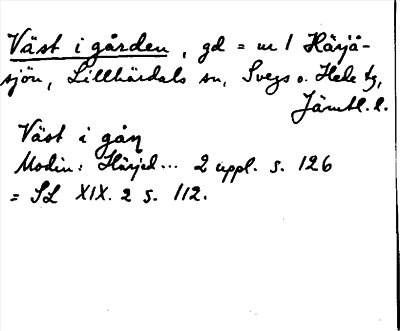 Väst i gården, gd = nr 1 Härjå-
sjön, Lillhärdals sn, Svegs o. Hede tg,
Jämtl. l.
Väst i gåɳ
Modin: Härjed... 2 uppl. s. 126
= SL XIX. 2 s. 112.